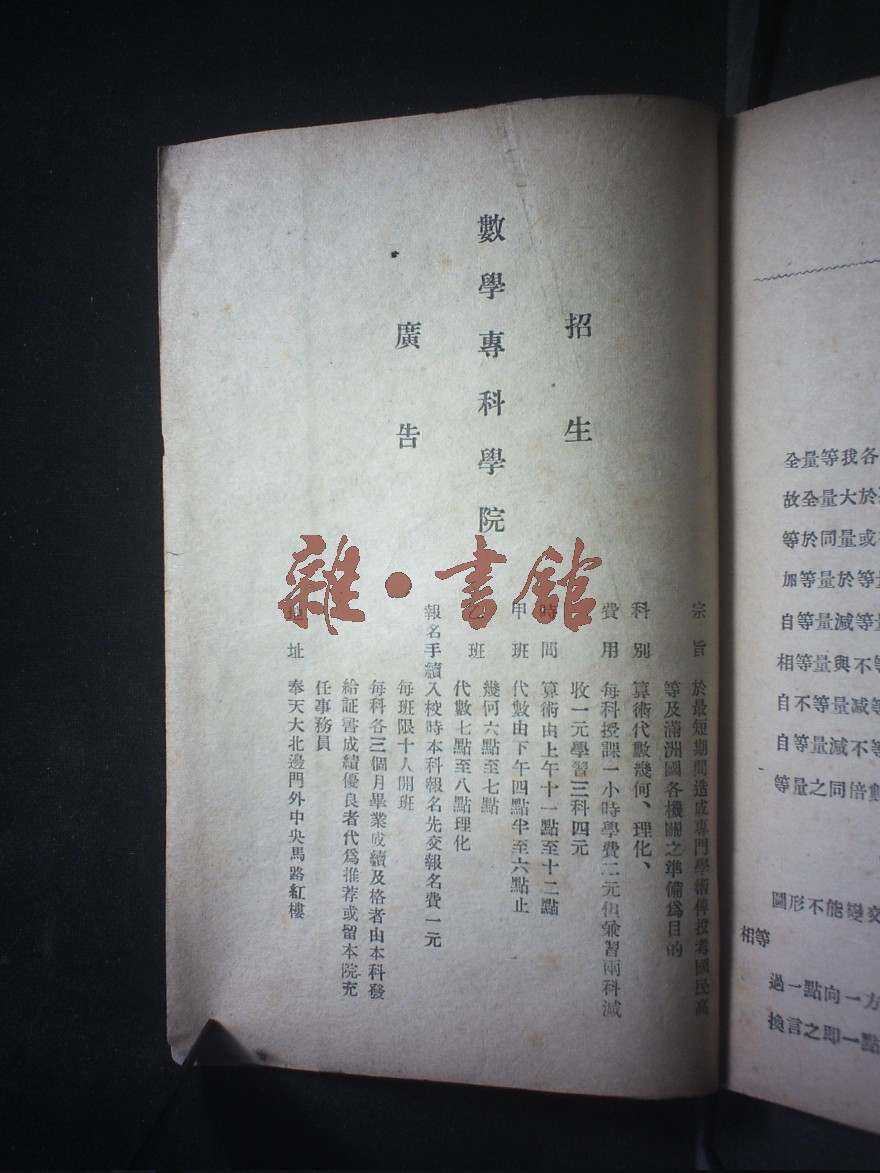 招生
數學專科學院
廣告
宗旨 於最短期間造成專門學術俾投考國民高
等及滿洲國各機關之準備爲目的
科別 算術代數幾何、理化、
費用 每科授課一小時學費二元但兼習兩科減
收一元學習三科四元
時間 算術由上午十一點至十二點
甲班 代數由下午四點半至六點止
幾何六點至七點
班 代數七點至八點理化
報名手續 入校時本科報名先交報名費一元
每班限十人開班
每科各三個月畢業成績及格者由本科發
給証書成績優良者代爲推荐或留本院充
任事務員
地址 奉天大北邊門外中央馬路紅樓
雜·書館
全量等我各
故全量大於
等於同量或
加等量於等量
自等量減等量
相等量與不等
自不等量减等
自等量減不等
等量之同倍數
圖形不能變交
相等
過一點向一方
換言之即一點